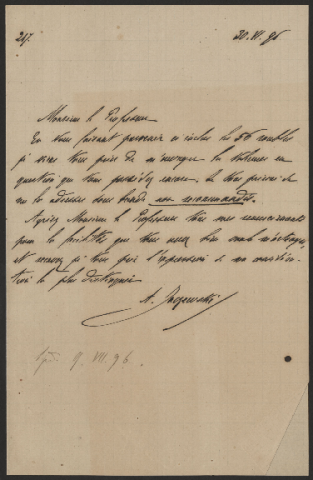 217.
30.VI.96
Monsieur le Professeur
En Vous faisant parvenir ci inclus les 56 roubles
je viens Vous prier de m'envoyer les
question que Vous possédez encore, de bien
me les adresser sous bande non recommandée.
Agréez Monsieur le Professeur tous mes remerciements
pour les que Vous avez bien voulu
et recevez je Vous prie l'expression de ma considéra-
tion la plus distinguée
A.
9. VII. 96.